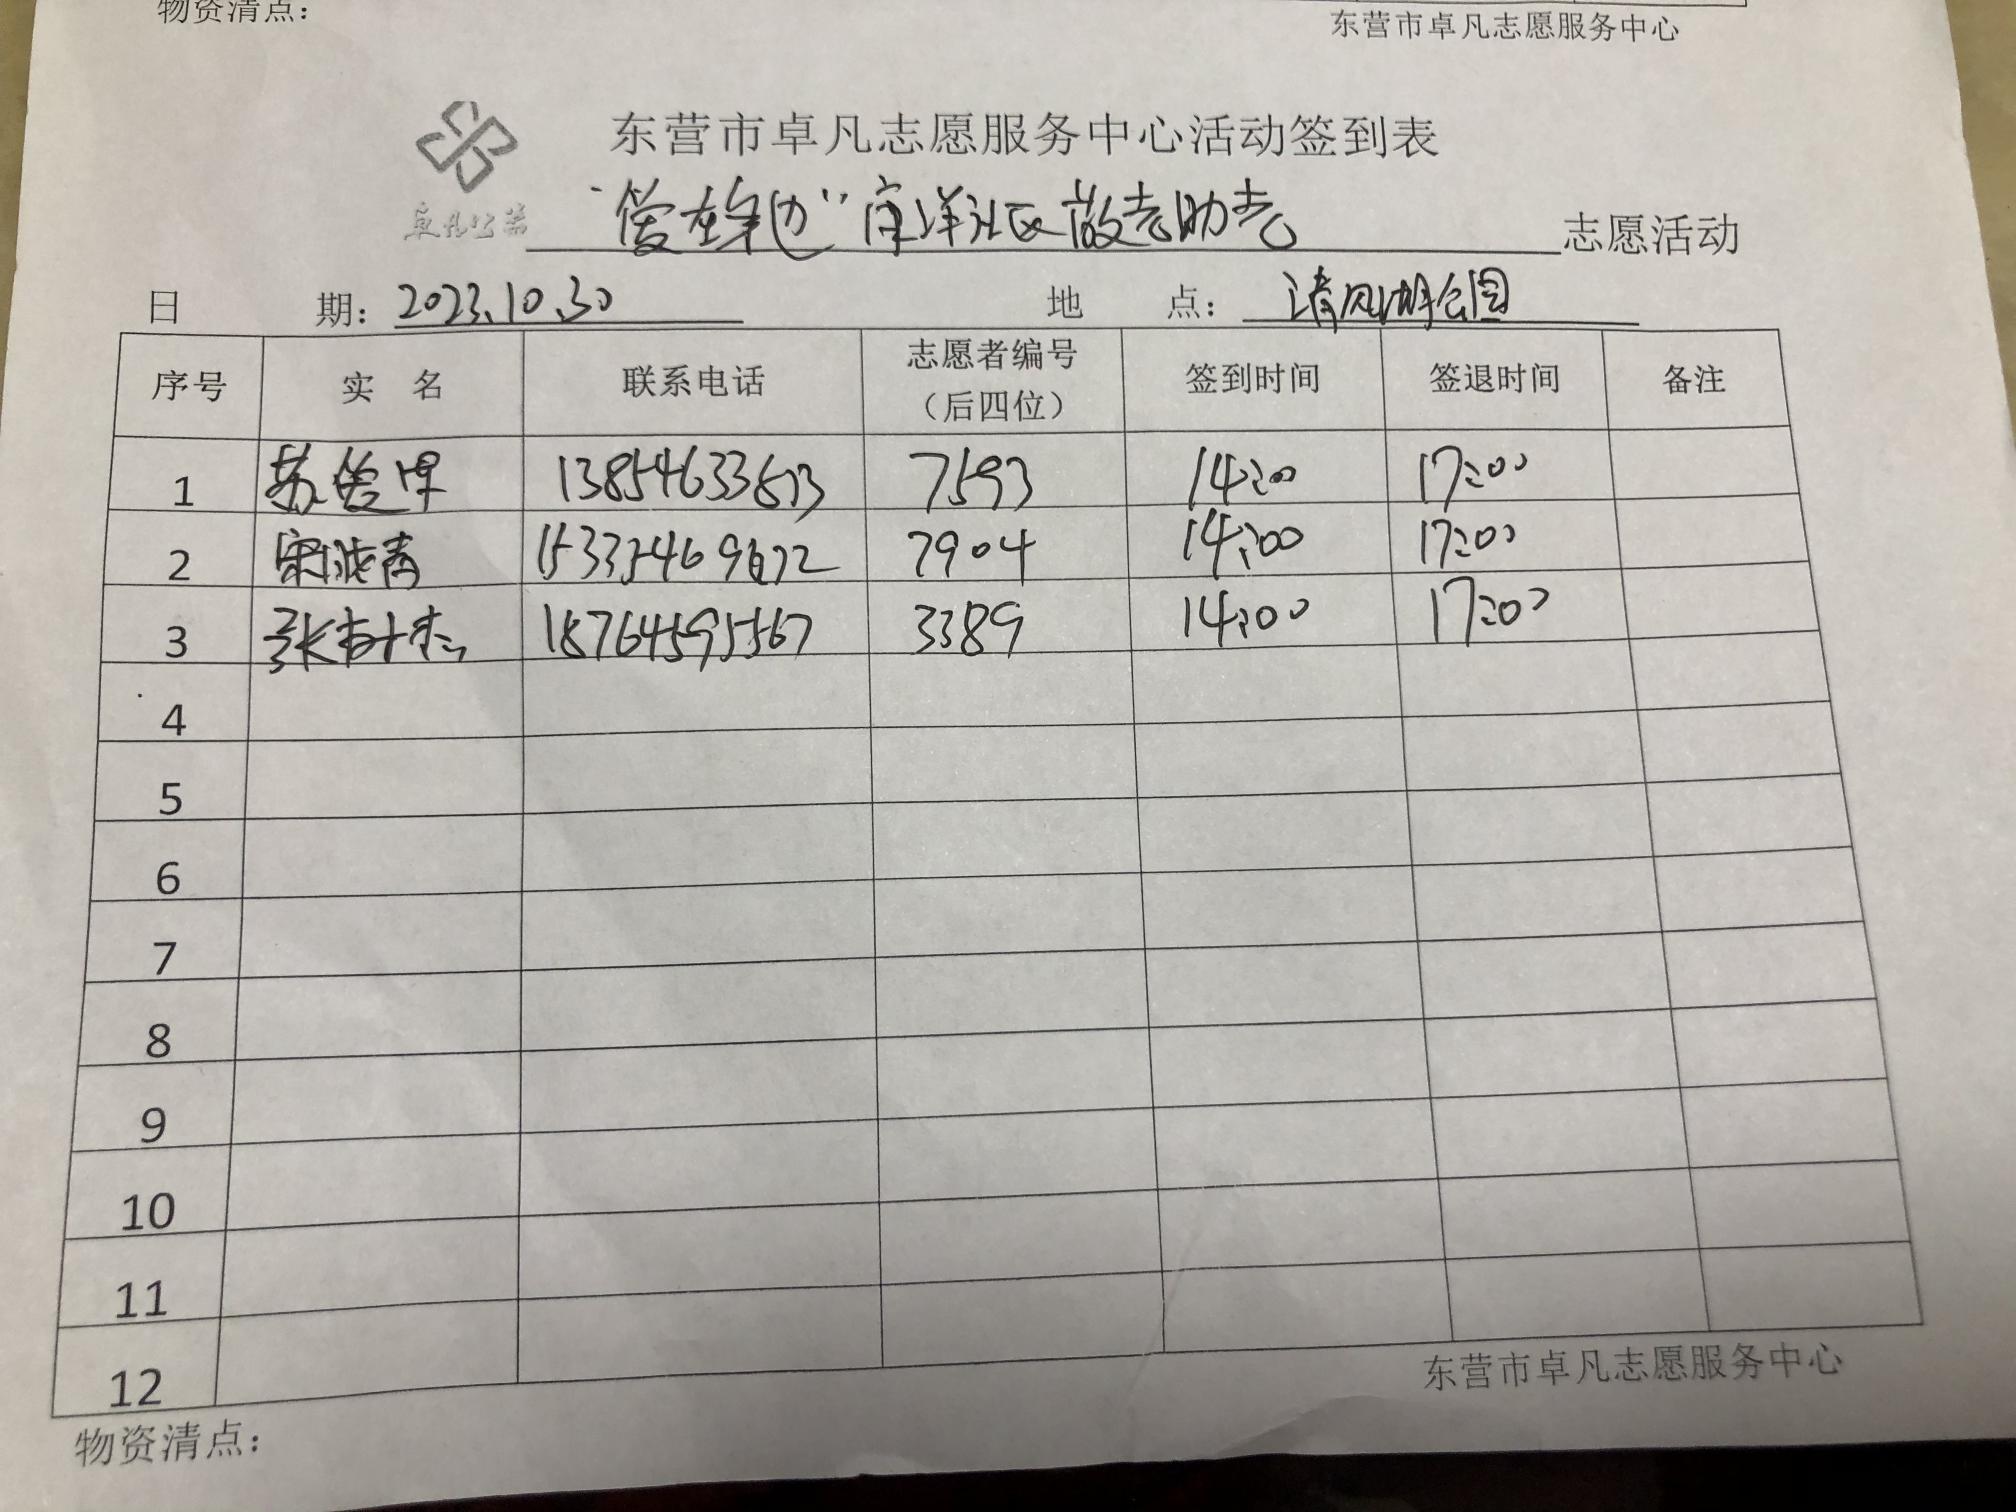 物资清点：
东营市卓凡志愿服务中心
东营市卓凡志愿服务中心活动签到表
卓凡公益
"爱在身边"海洋社区敬老助老 志愿活动
日 期：2023.10.30 地 点：清风湖公园
序号 实 名 联系电话 志愿者编号（后四位） 签到时间 签退时间 备注
1 苏爱 7593 14:00 17:00
2 宋 青 7904 14:00 17:00
3 张树杰 18764595567 3389 14:00 17:00
4
5
6
7
8
9
10
11
12
东营市卓凡志愿服务中心
物资清点：